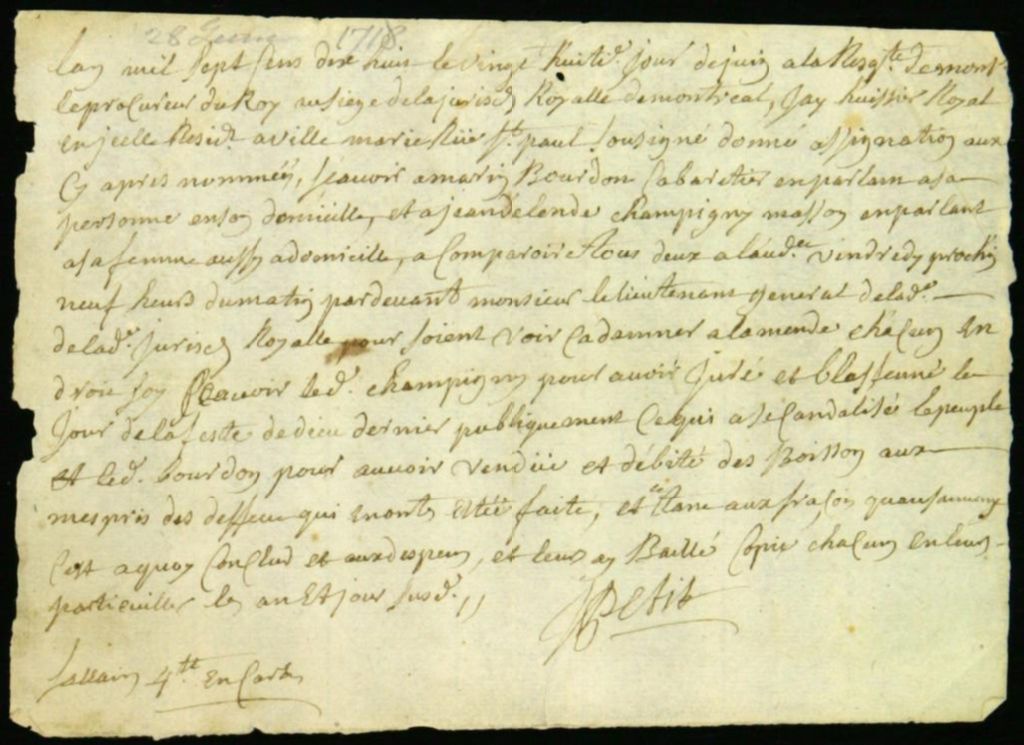 28 1718
Lan mil sept sens dix huit le vingt huitie. jour de juin a la Reqte. de mont
le procureur du Roy au siege de la jurisdn Royalle de montreal, Jay huissier Royal
en jcelle Residt. a ville marie Rüe St. paul sousigné donné assignation aux
Cy apres nommés, scauoir a marin Bourdon Cabaretier en parlant a sa
personne en son domicille, et a jean delende champigny masson en parlant
a sa femme aussy a domicille, a Comparoir tous deux a laudce. vendredy prochn
neuf heurs du matin pardeuant monsieur le lieutenant general de lade.
de lade. jurisdn Royalle pour soient voir Cōdamner a lamende chaCun En
droit soy scauoir led. champigny pour auoir Juré et blasfemé le
Jour de la feste de dieu dernier publiquement Ce qui a scandalisé le peuple
et led. bourdon pour auuoir vendüe et débité des Boisson aux
mespris des deffence qui en onts estée faite, et
Cest a quoy Conclud et aux despens, et leurs ay Baillé Copie chaCun en leurs
particuillier les an Et jour susd.
Petit
4tt En Carte